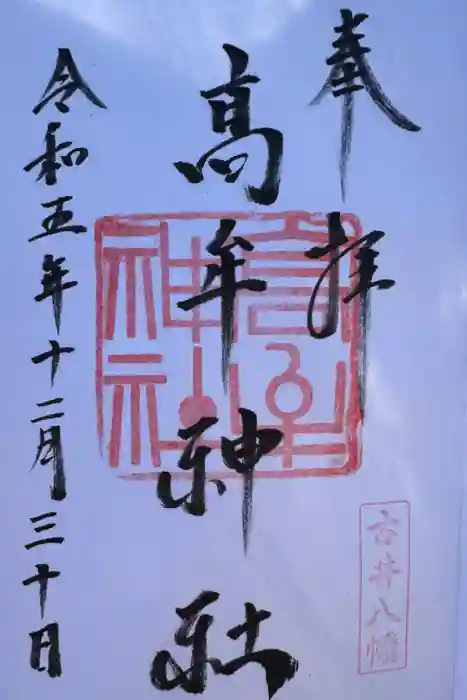 奉拝
高牟神社
高牟神社
古井八幡
令和五年十二月三十日